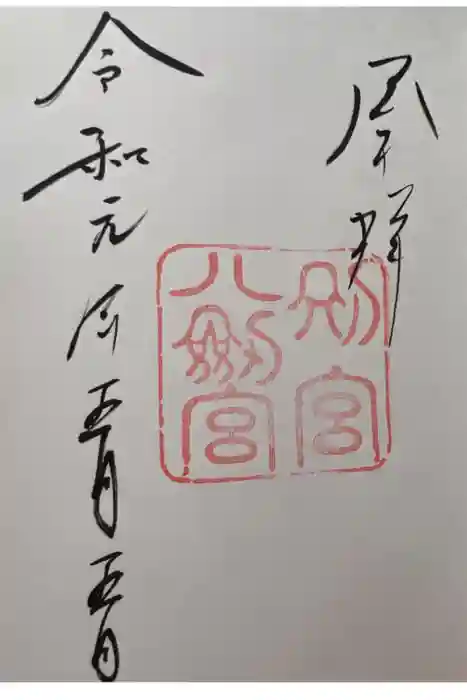 奉拝
別宮
八剣宮
令和元年五月五日